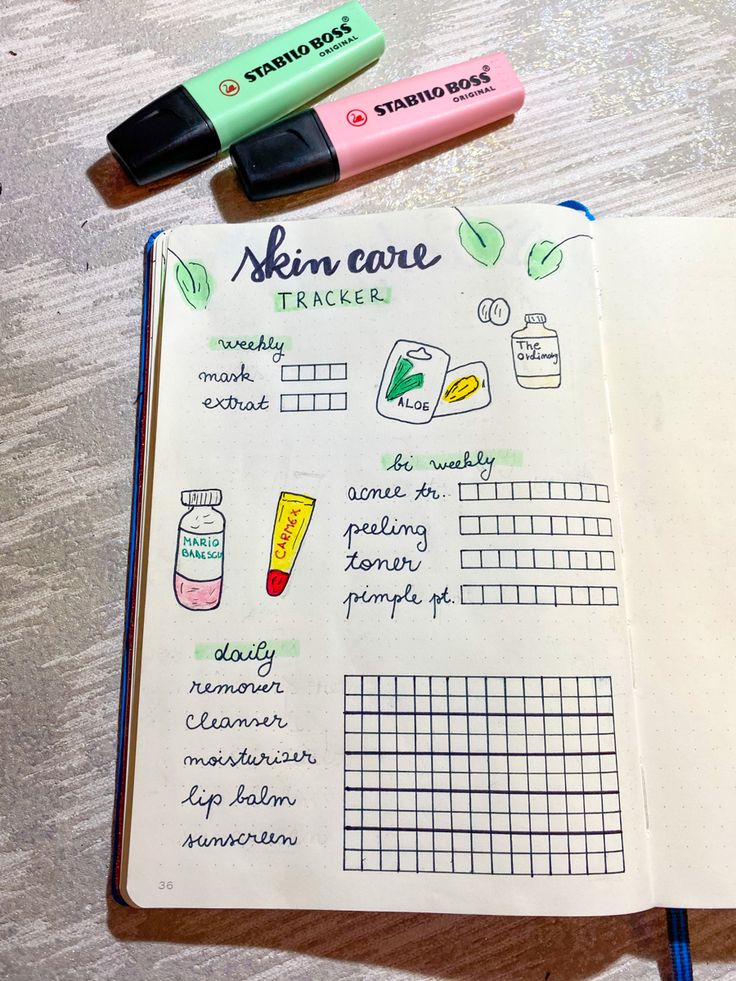 STABILO BOSS®
ORIGINAL
STABILO BOSS®
ORIGINAL
skin care
TRACKER
weekly
mask
extrat
ALOE
The
Ordinary
bi weekly
acnee tr.
peeling
toner
pimple pt.
MARIO
BADESCU
CARMEX
daily
remover
cleanser
moisturizer
lip balm
sunscreen
36